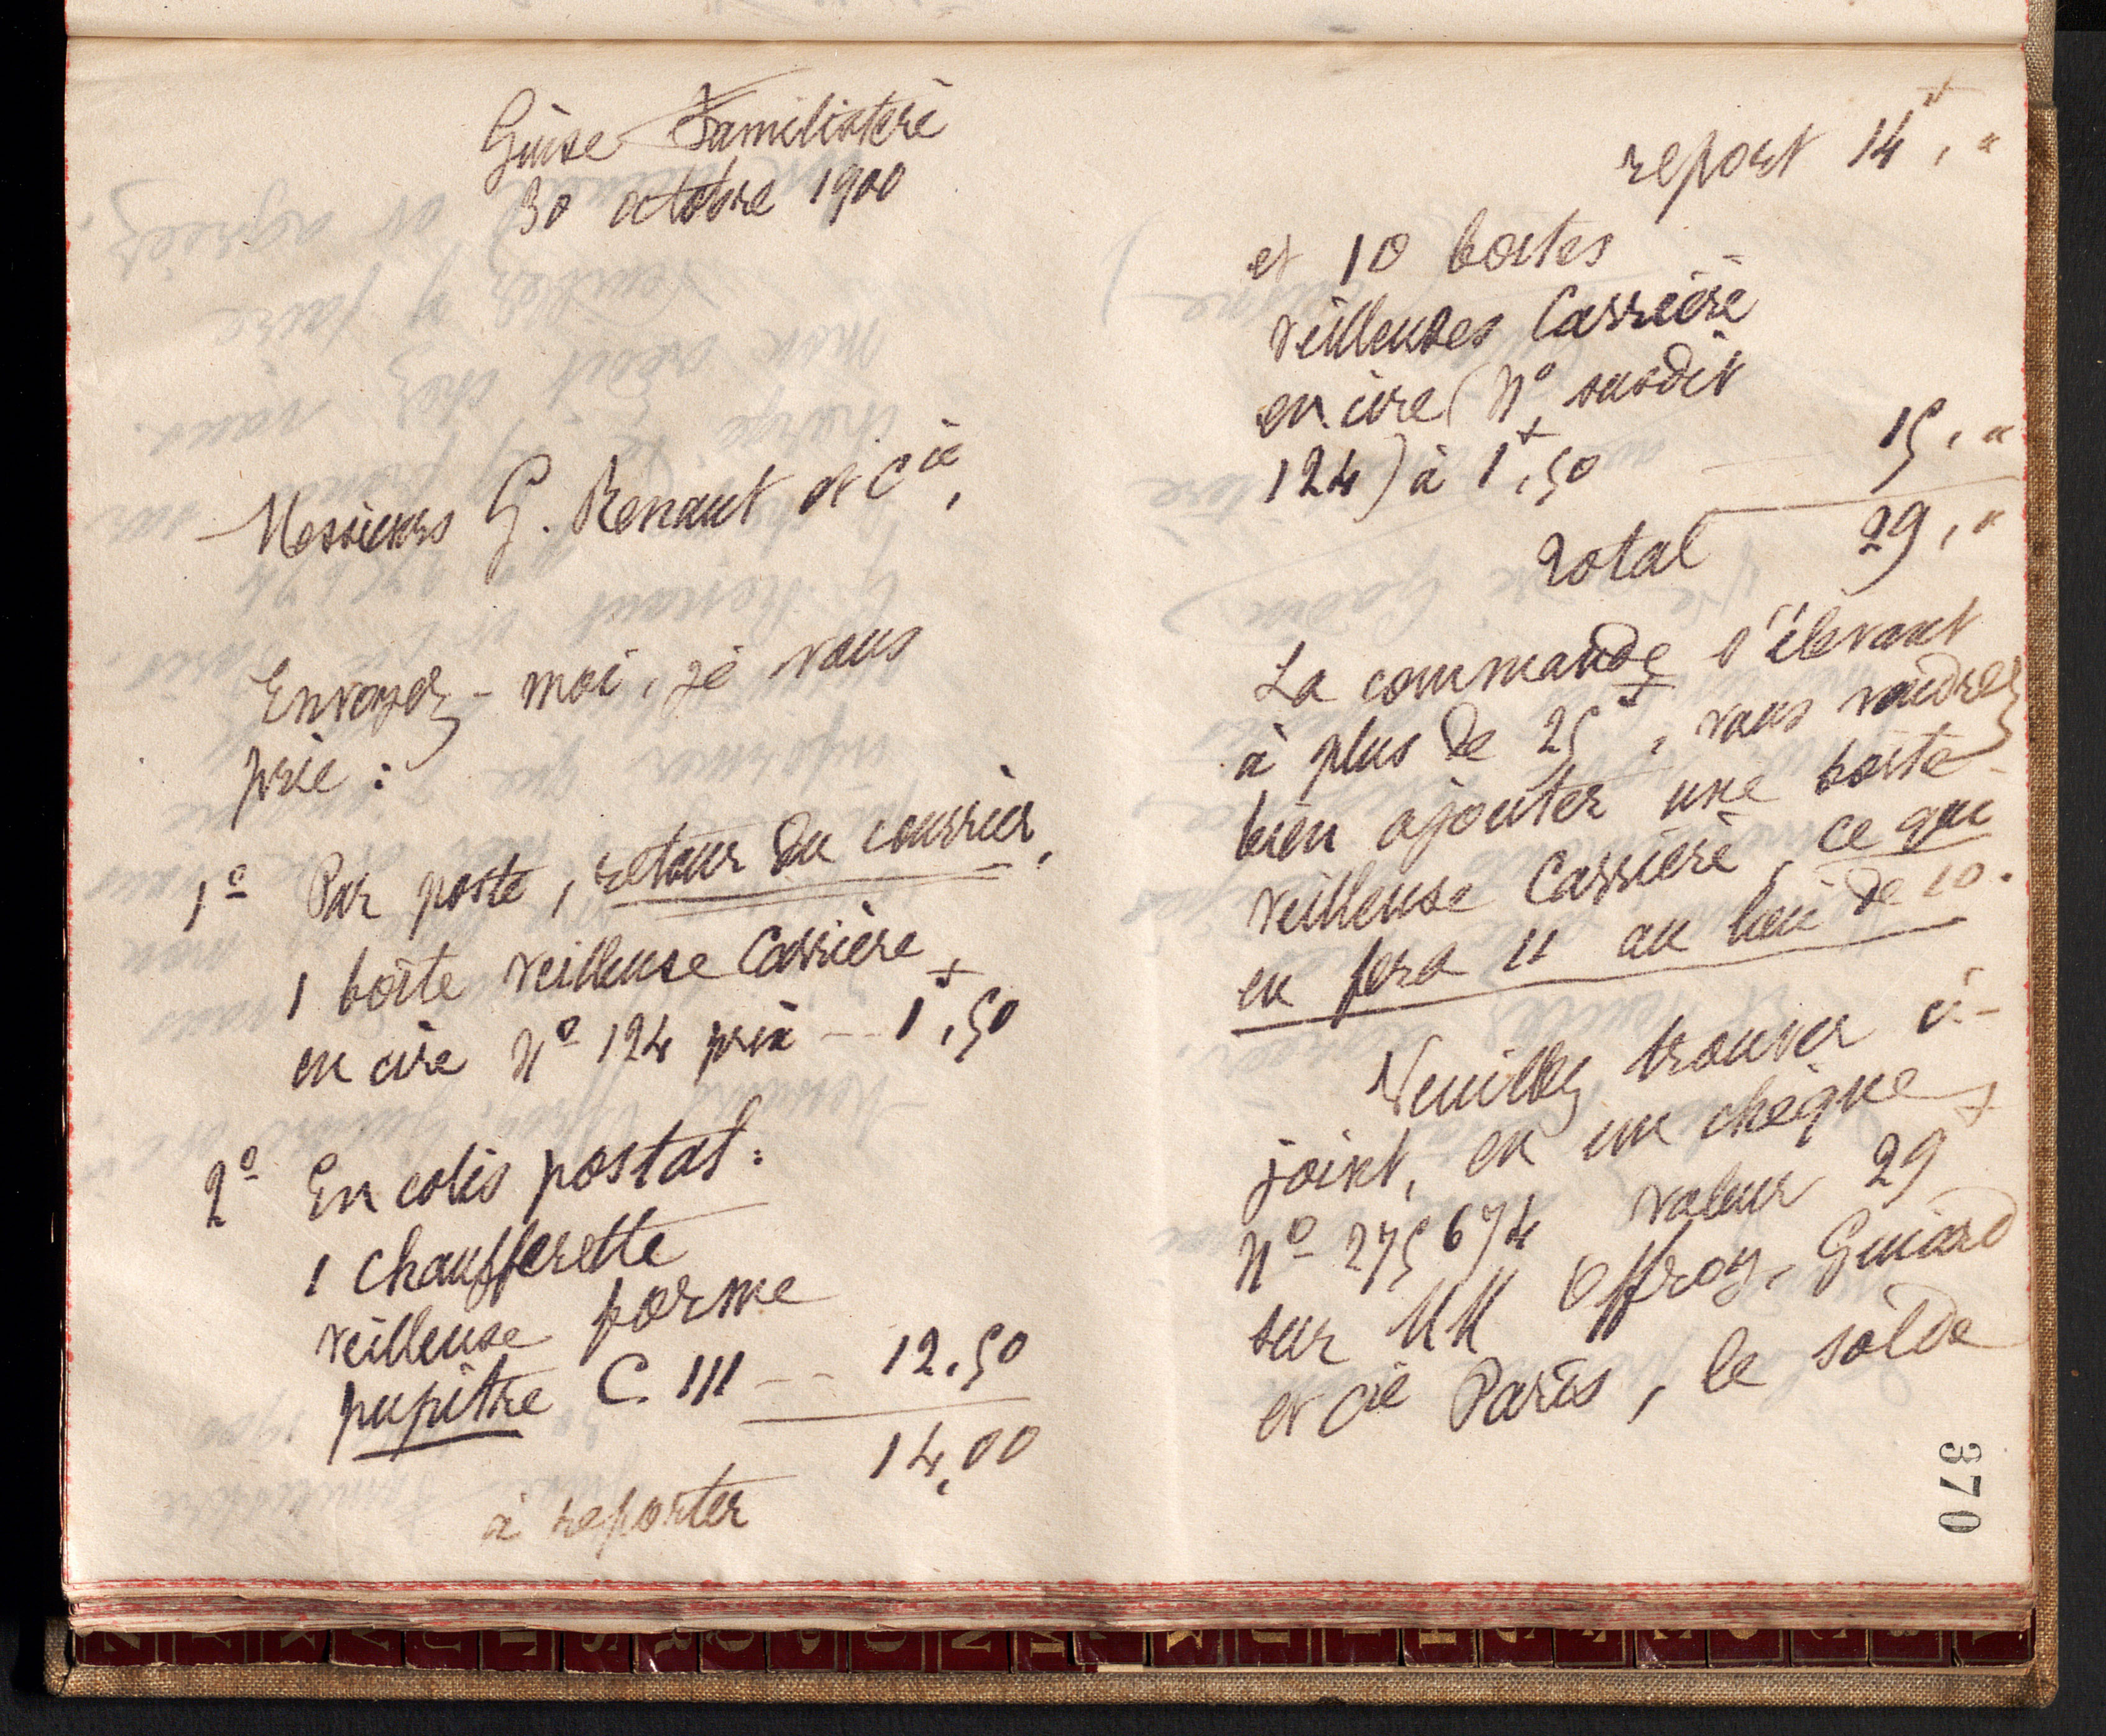 Guise Familistère
30 octobre 1900
Messieurs G. Renaut et Cie,
Envoyez-moi, je vous
prie :
1º Par poste, retour du courrier,
1 boîte veilleuse Carrière
en cire Nº 124 prix -- 1f,50
2º En colis postal :
1 chaufferette
veilleuse forme
pupitre C. III -- 12.50
14,00
à reporter
report 14f, "
et 10 boîtes
veilleuses Carrière
en cire (Nº susdit
124) à 1f,50 15, "
Total 29, "
La commande s'élevant
à plus de 25f, vous voudrez
bien ajouter une boîte
veilleuse Carrière, ce qui
en fera 11 au lieu de 10.
Veuillez trouver ci-
joint, en un chèque
Nº 275674 valeur 29f
sur MM Offroy, Guiard
et Cie Paris, le solde
370